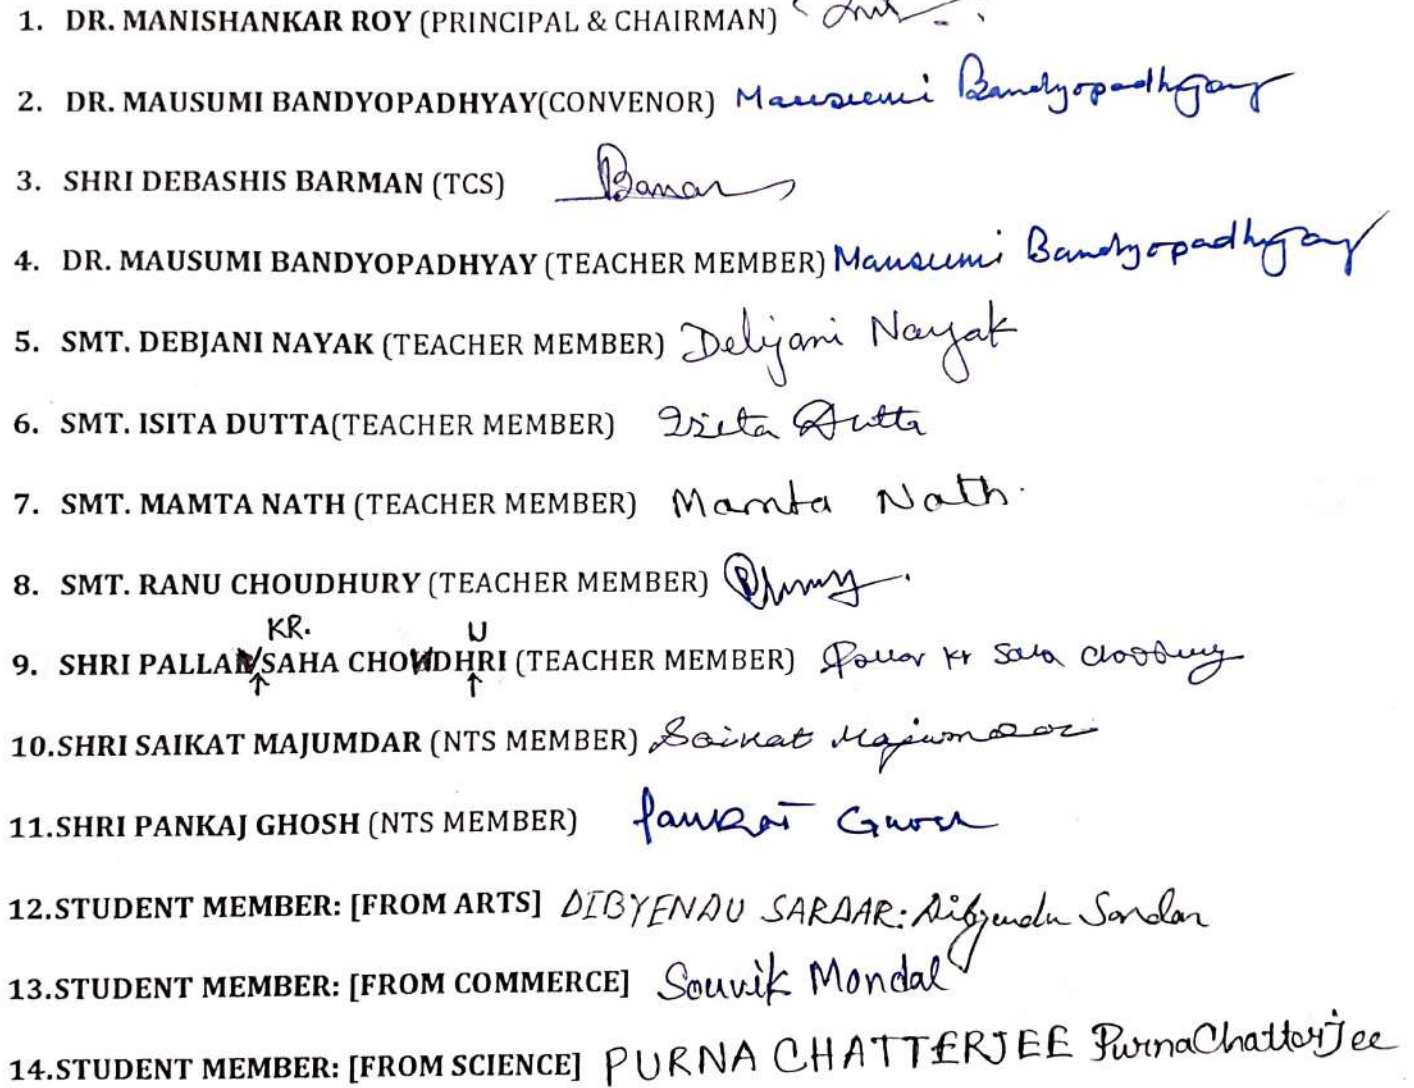 1. DR. MANISHANKAR ROY (PRINCIPAL & CHAIRMAN)
2. DR. MAUSUMI BANDYOPADHYAY(CONVENOR) Mausumi Bandyopadhyay
3. SHRI DEBASHIS BARMAN (TCS)
4. DR. MAUSUMI BANDYOPADHYAY (TEACHER MEMBER) Mausumi Bandyopadhyay
5. SMT. DEBJANI NAYAK (TEACHER MEMBER) Debjani Nayak
6. SMT. ISITA DUTTA(TEACHER MEMBER) Isita Dutta
7. SMT. MAMTA NATH (TEACHER MEMBER) Mamta Nath.
8. SMT. RANU CHOUDHURY (TEACHER MEMBER)
KR. U
9. SHRI PALLAV SAHA CHOWDHRI (TEACHER MEMBER) Pallav Kr Saha Choudhury
10.SHRI SAIKAT MAJUMDAR (NTS MEMBER) Saikat Majumdar
11.SHRI PANKAJ GHOSH (NTS MEMBER) Pankaj Ghosh
12.STUDENT MEMBER: [FROM ARTS] DIBYENDU SARDAR: Dibyendu Sardar
13.STUDENT MEMBER: [FROM COMMERCE] Souvik Mondal
14.STUDENT MEMBER: [FROM SCIENCE] PURNA CHATTERJEE Purna Chatterjee